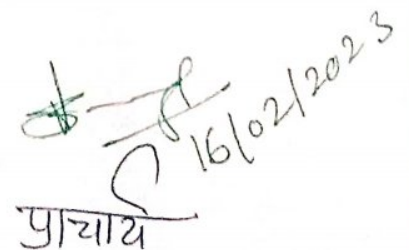 16/02/2023
प्राचार्य